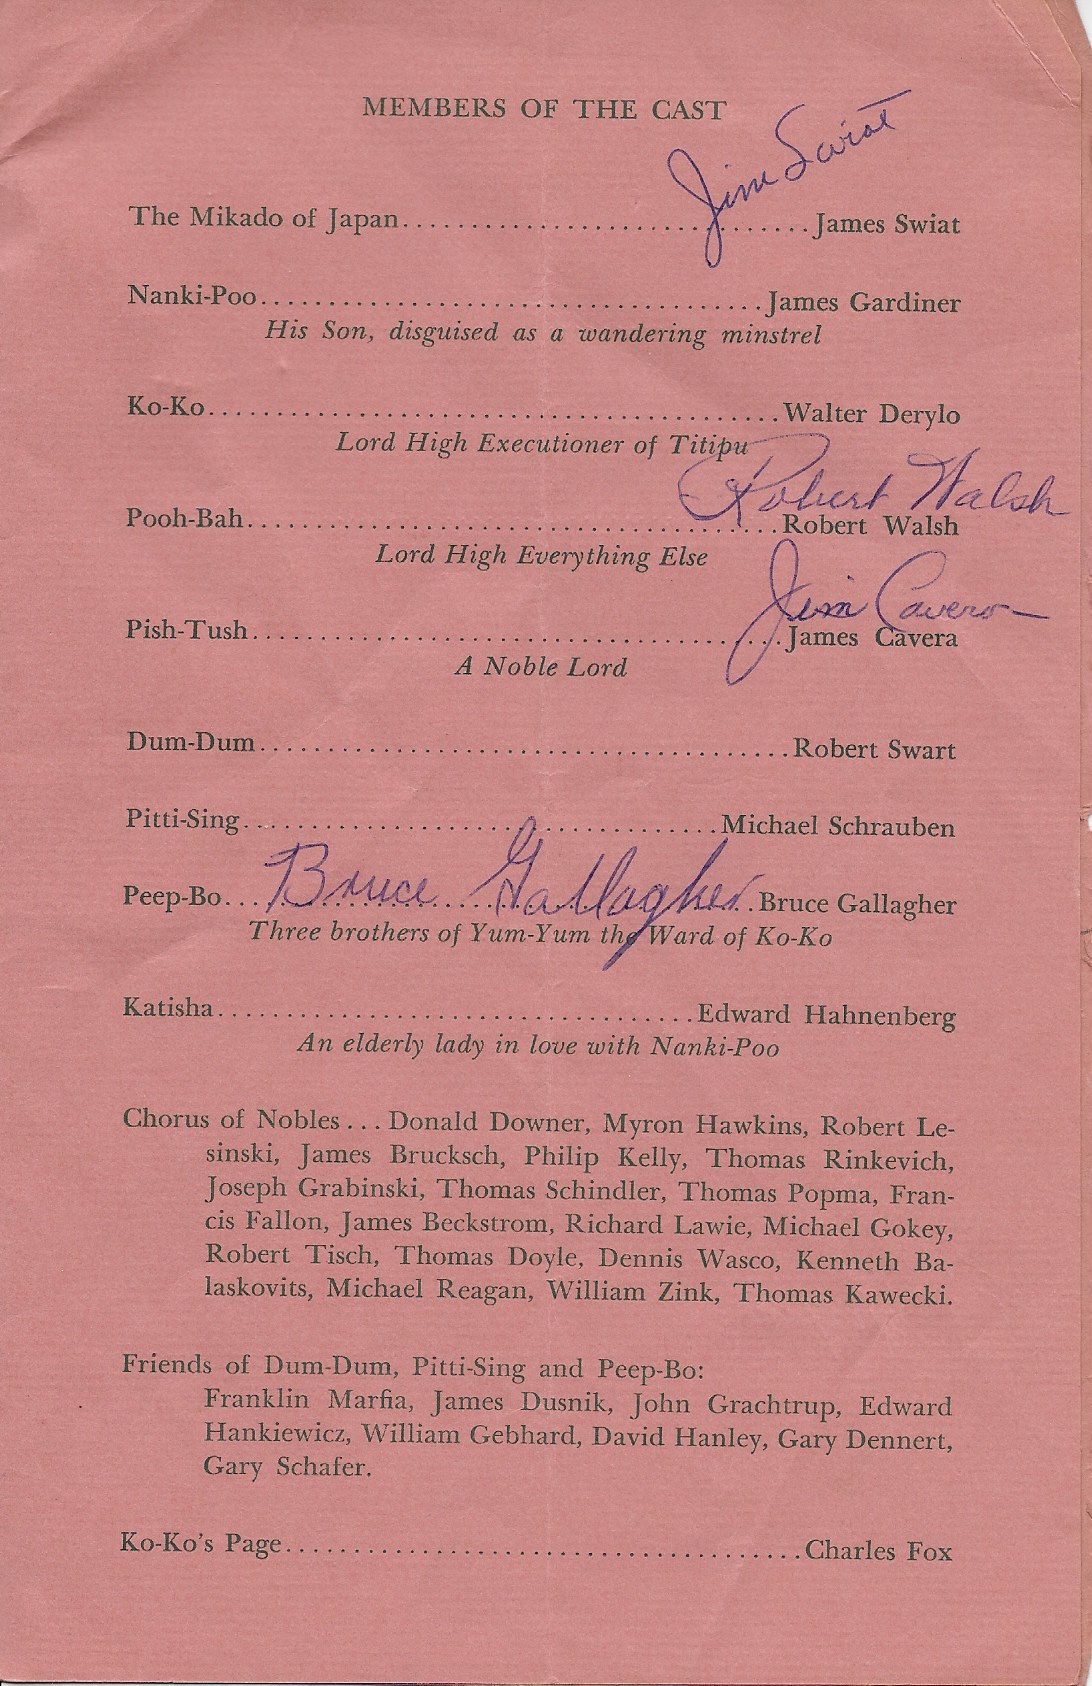 MEMBERS OF THE CAST
Jim Swiat
The Mikado of Japan..............................James Swiat
Nanki-Poo.....................................James Gardiner
His Son, disguised as a wandering minstrel
Ko-Ko..........................................Walter Derylo
Lord High Executioner of Titipu
Robert Walsh
Pooh-Bah.......................................Robert Walsh
Lord High Everything Else
Jim Cavera
Pish-Tush.......................................James Cavera
A Noble Lord
Dum-Dum.......................................Robert Swart
Pitti-Sing...................................Michael Schrauben
Peep-Bo... Bruce Gallagher .Bruce Gallagher
Three brothers of Yum-Yum the Ward of Ko-Ko
Katisha...................................Edward Hahnenberg
An elderly lady in love with Nanki-Poo
Chorus of Nobles... Donald Downer, Myron Hawkins, Robert Le-
sinski, James Brucksch, Philip Kelly, Thomas Rinkevich,
Joseph Grabinski, Thomas Schindler, Thomas Popma, Fran-
cis Fallon, James Beckstrom, Richard Lawie, Michael Gokey,
Robert Tisch, Thomas Doyle, Dennis Wasco, Kenneth Ba-
laskovits, Michael Reagan, William Zink, Thomas Kawecki.
Friends of Dum-Dum, Pitti-Sing and Peep-Bo:
Franklin Marfia, James Dusnik, John Grachtrup, Edward
Hankiewicz, William Gebhard, David Hanley, Gary Dennert,
Gary Schafer.
Ko-Ko's Page......................................Charles Fox